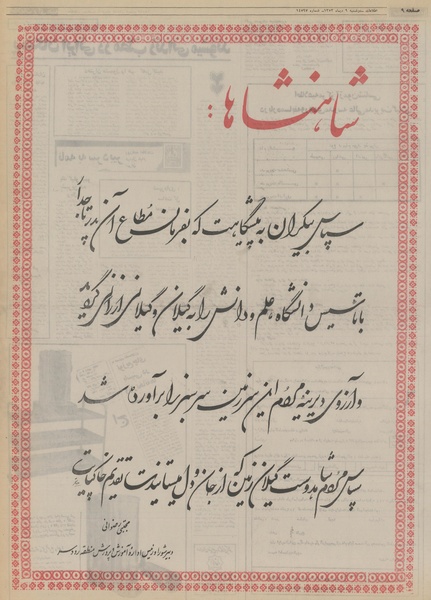 صفحه ۹
شاهنشاها:
سپاس بیکران به پیشگاهت که بفرمان مطاع آن پدر تاجدار
با تاسیس دانشگاه، علم و دانش را به گیلان و گیلانی ارزانی گردید
و آرزوی دیرینه مردم این سرزمین سرسبز را برآورده شد
سپاس مردم شاهدوست گیلان زمین که از جان و دل میستایندت تقدیم خاکپایت
مجتبی رضوانی
دبیر شورا و رئیس اداره آموزش و پرورش منطقه رودسر